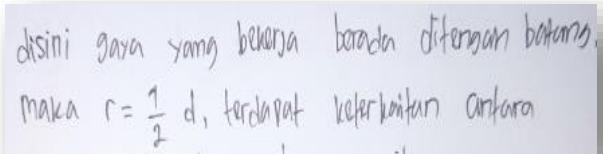 disini gaya yang bekerja berada ditengah batang.
maka r = 1/2 d, terdapat keterkaitan antara